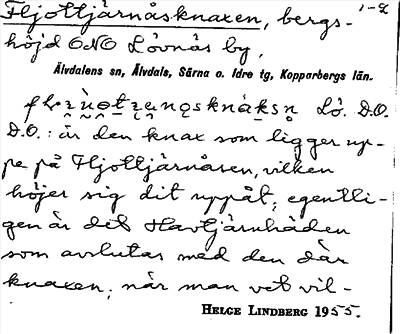 Fljottjärnåsknaxen, bergs- 1-2
höjd ONO Lövnäs by,
Älvdalens sn, Älvdals, Särna o. Idre tg, Kopparbergs län.
Lö. D.O.
D.O.: är den knax som ligger up-
pe på Fljottjärnåsen, vilken
höjer sig dit uppåt; egentli-
gen är det Havtjärnhäden
som avslutas med den där
knaxen; när man vet vil-
HELGE LINDBERG 1955.